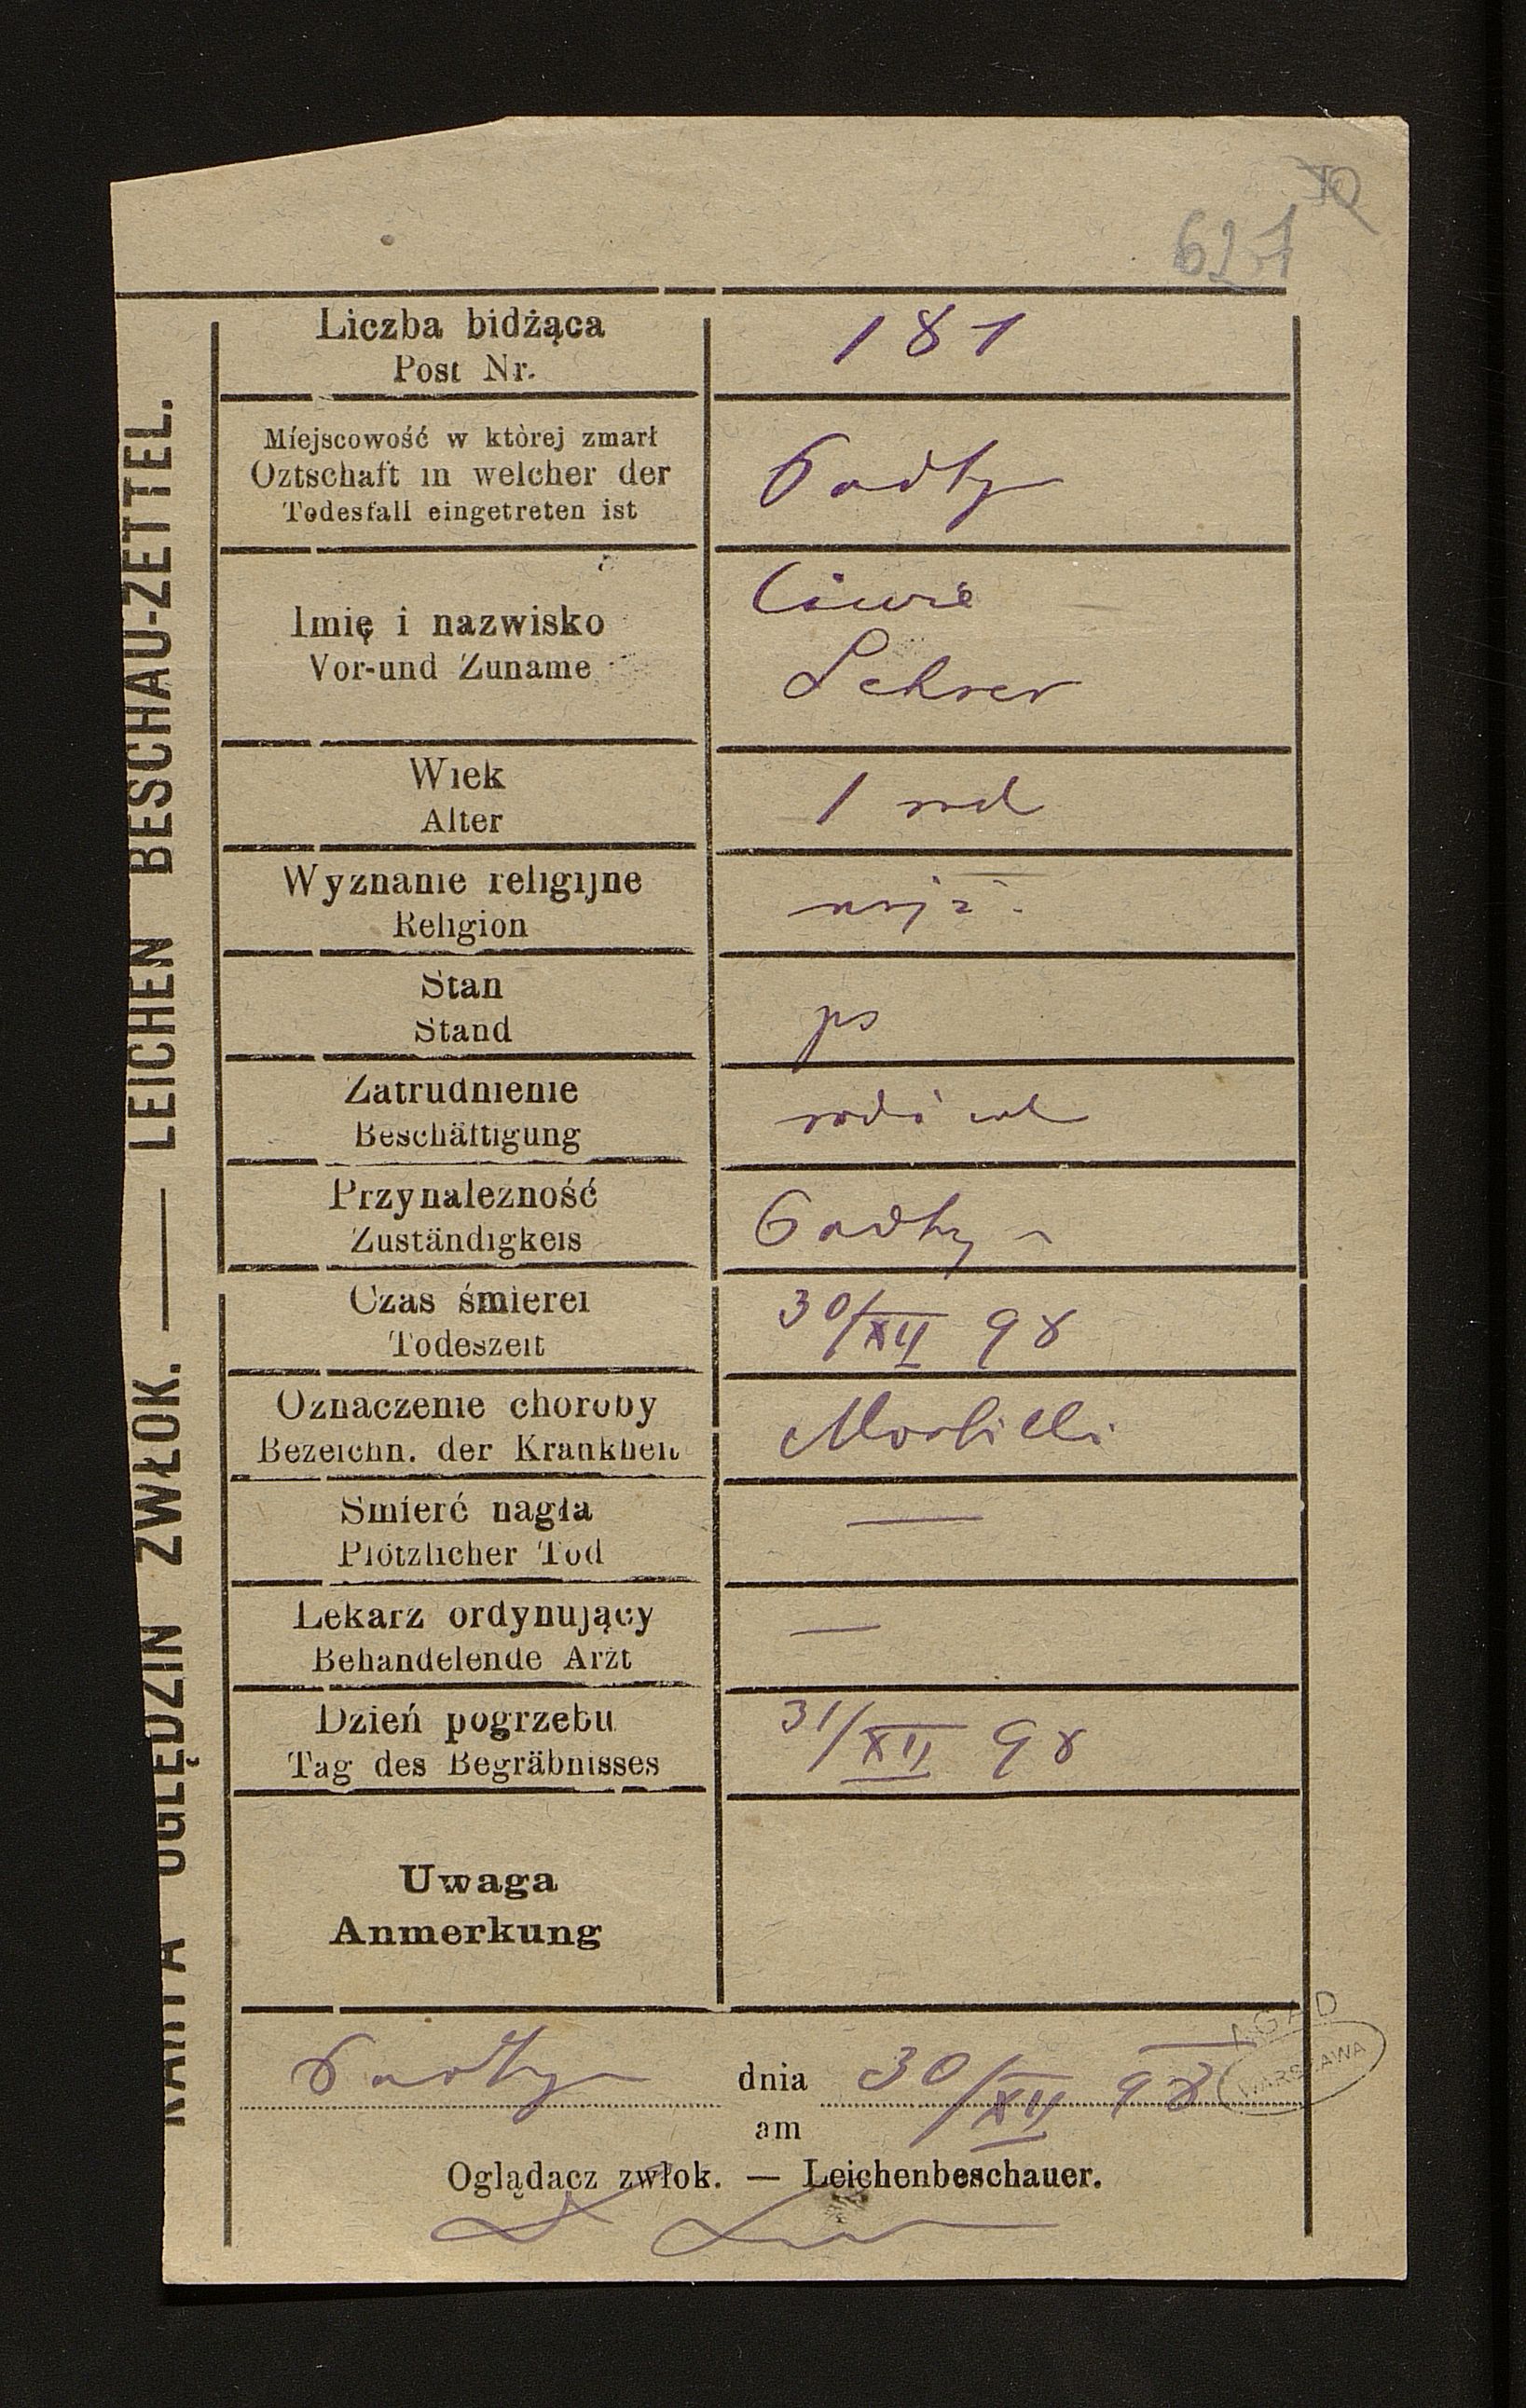 621
KARTA OGLĘDZIN ZWŁOK. — LEICHEN BESCHAU-ZETTEL.
Liczba bidżąca
Post Nr.
181
Miejscowość w której zmarł
Oztschaft in welcher der
Todesfall eingetreten ist
Imię i nazwisko
Vor-und Zuname
Lehrer
Wiek
Alter
1 rok
Wyznanie religijne
Religion
mojż.
Stan
Stand
Zatrudnienie
Beschäftigung
Przynależność
Zuständigkeis
Czas śmierei
Todeszeit
30/XII 98
Oznaczenie choroby
Bezeichn. der Krankheit
Morbilli
Smierć nagła
—
Plötzlicher Tod
Lekarz ordynujący
—
Behandelende Arzt
Dzień pogrzebu
Tag des Begräbnisses
31/XII 98
Uwaga
Anmerkung
dnia 30/XII 98
am
Oglądacz zwłok. — Leichenbeschauer.
AGAD
WARSZAWA